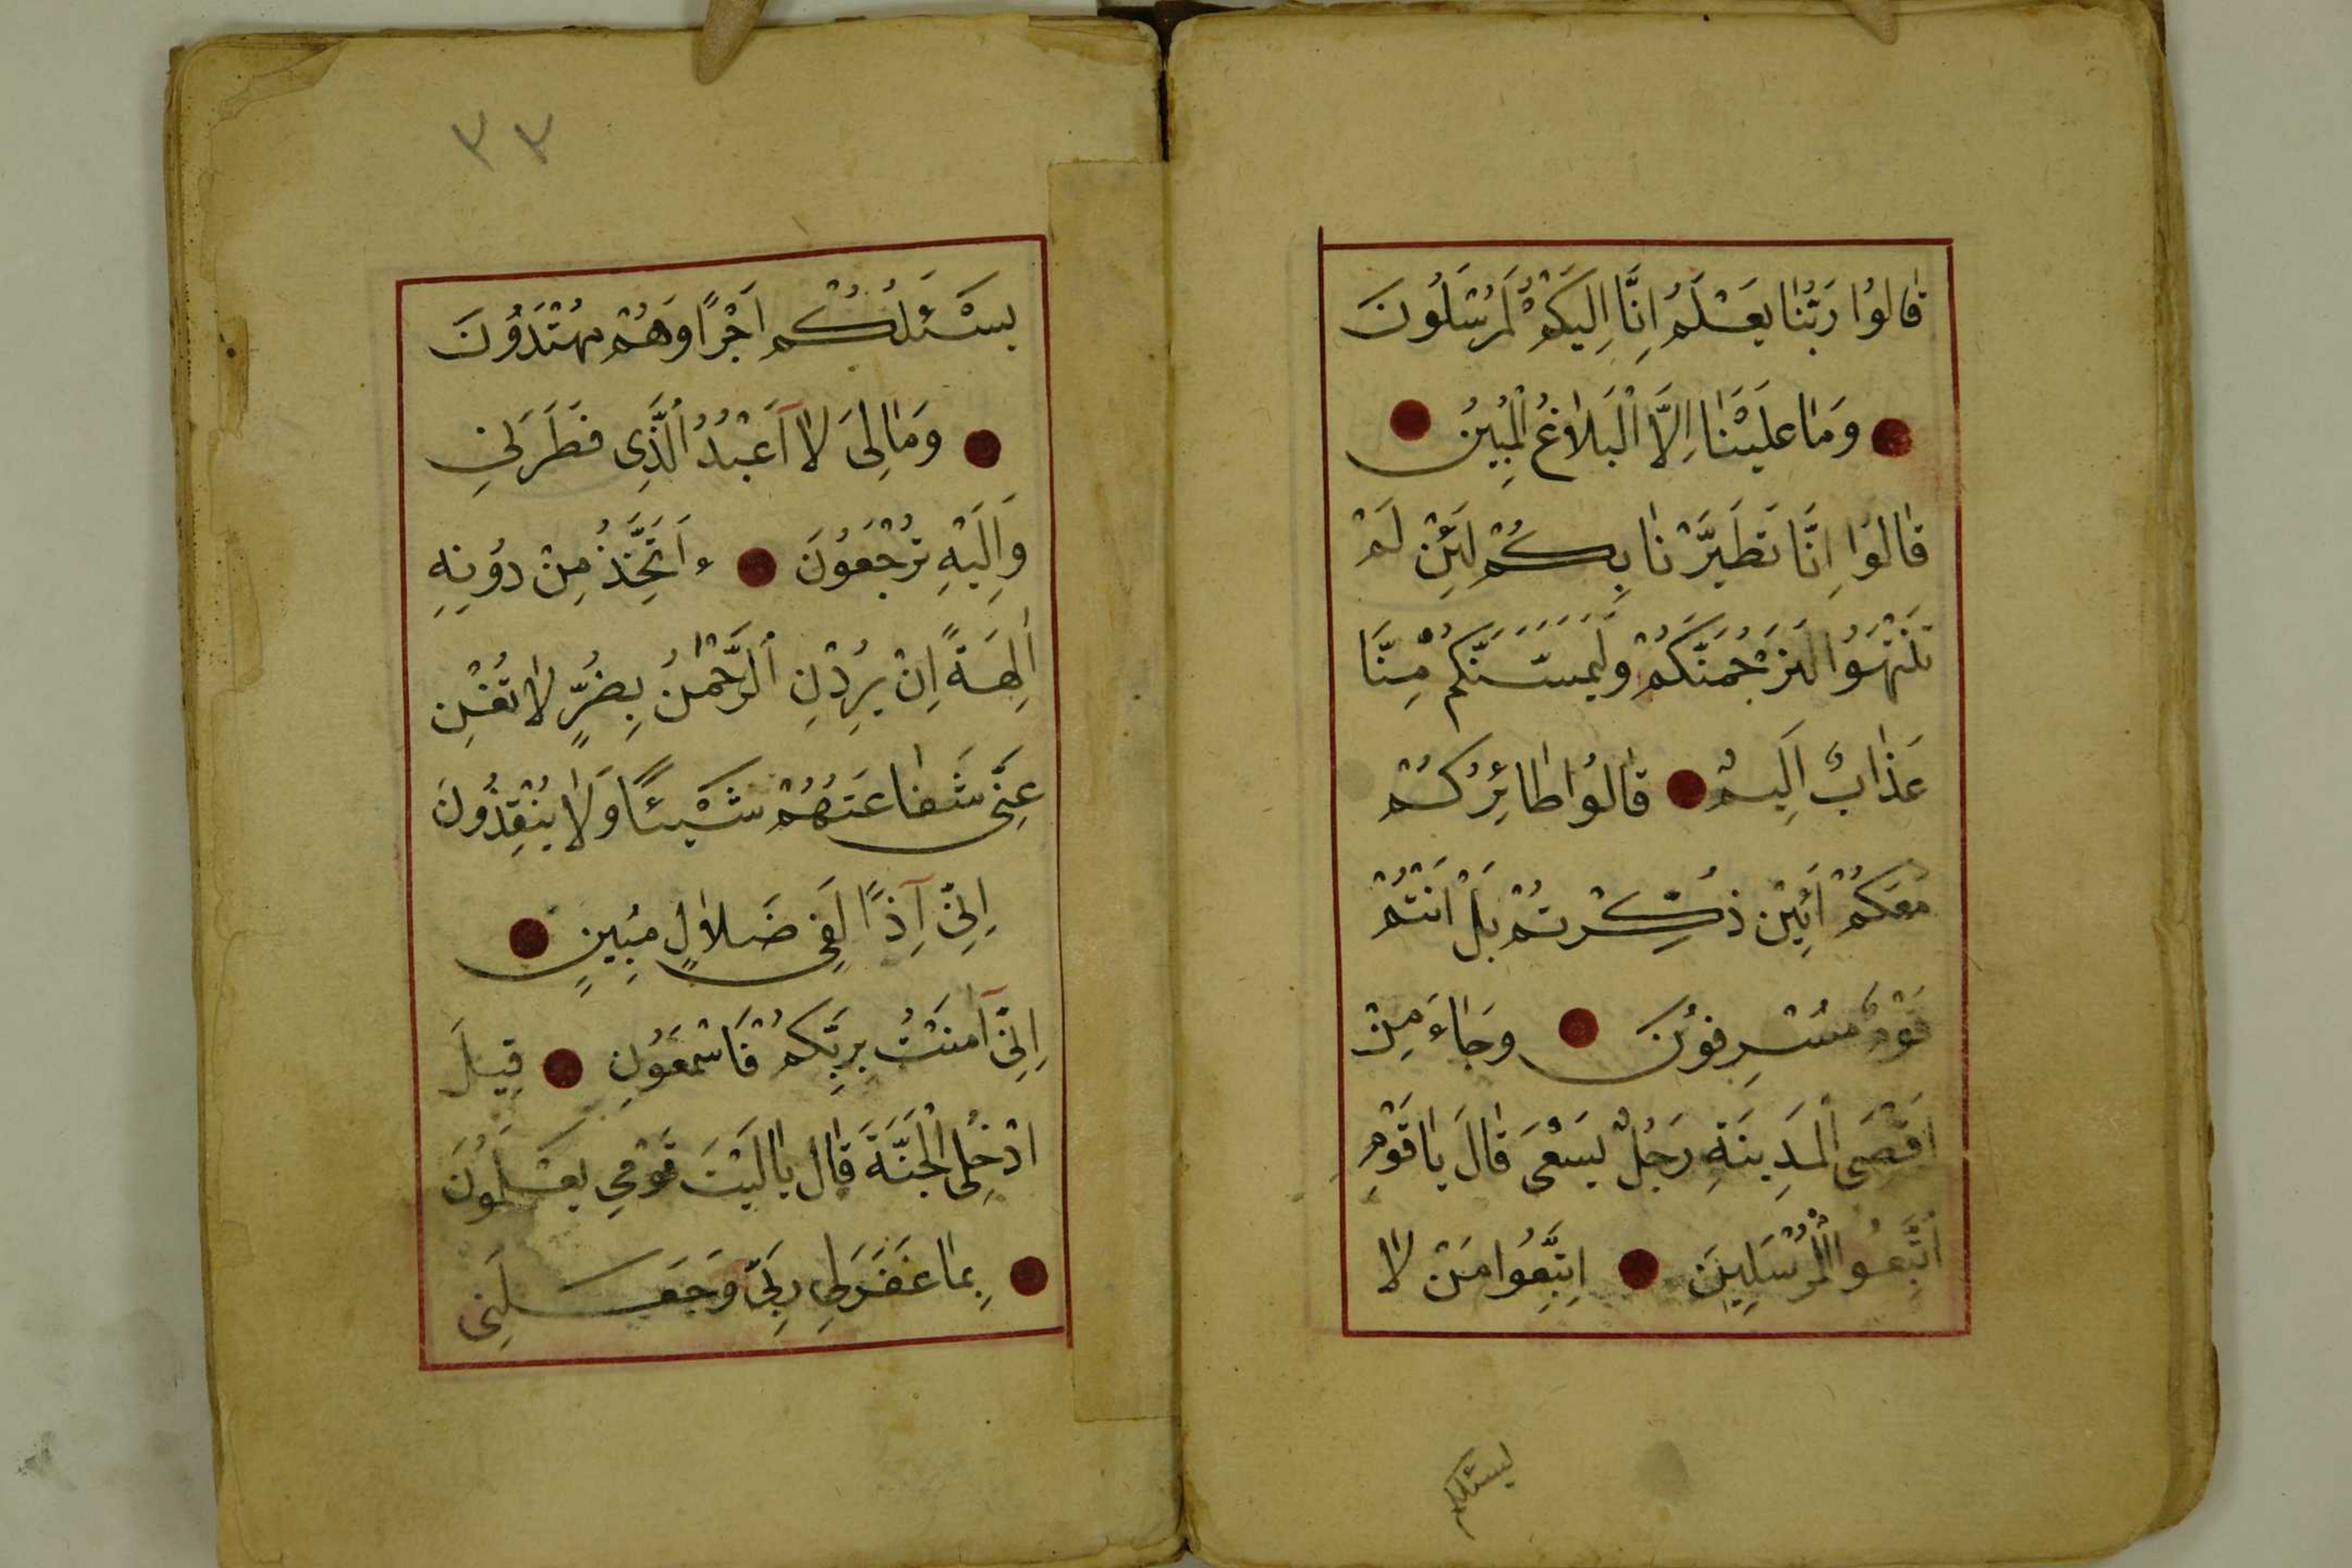 قَالُوُا رَبُّنَا يَعْلَمُ اِنَّا اِلَيْكُمْ لَمُرْسَلُونَ
وَمَا عَلَيْنَا اِلَّا الْبَلَاغُ الْمُبِيْنُ
قَالُوا اِنَّا تَطَيَّرْنَا بِكُمْ لَئِنْ لَمْ
تَنْتَهُوا لَنَرْجُمَنَّكُمْ وَلَيَمَسَّنَّكُمْ مِنَّا
عَذَابٌ اَلِيمٌ قَالُوُا طَائِرُكُمْ
مَعَكُمْ اَئِيْن ذُكِّرْتُمْ بَلْ اَنْتُمْ
قَوْمٌ مُسْرِفُونَ وَجَاءَ مِنْ
اَقْصَى الْمَدِينَةِ رَجُلٌ يَسْعَى قَالَ يَا قَوْمِ
اتَّبِعُوا الْمُرْسَلِينَ اِتَّبِعُوا مَنْ لَا
ليسئلكم
٣٣
يَسْئَلُكُمْ اَجْرًا وَهُمْ مُهْتَدُونَ
وَمَا لِىَ لَا آَعْبُدُ الَّذِى فَطَرَنِي
وَاِلَيْهِ تُرْجَعُونَ ءَاَتَّخِذُ مِنْ دُونِهِ
اٰلِهَةً اِنْ يُرِدْنِ الرَّحْمٰنُ بِضُرٍّ لَا تُغْنِ
عَنِّى شَفَاعَتُهُمْ شَيْئًا وَلَا يُنْقِذُونَ
اِنِّى آِذًا لَفِى ضَلَالٍ مُبِينٍ
اِنِّى آمَنْتُ بِرَبِّكُمْ فَاسْمَعُونِ قِيلَ
ادْخُلِ الْجَنَّةَ قَالَ يَالَيْتَ قَوْمِي يَعْلَمُونَ
بِمَا غَفَرَلِي رَبِّى وَجَعَلَنِى